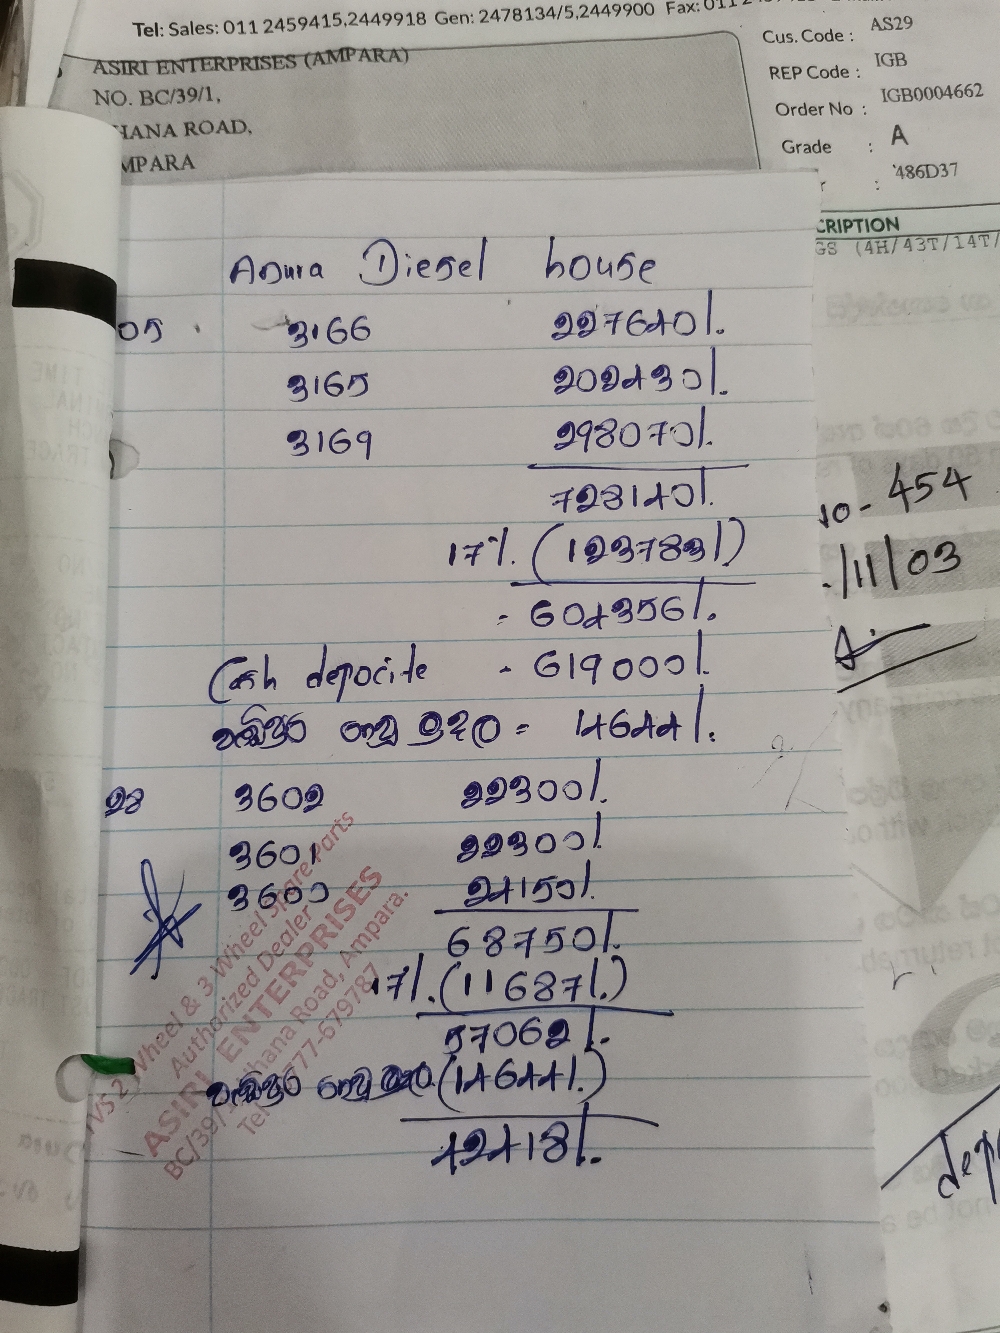 Tel: Sales: 011 2459415,2449918 Gen: 2478134/5,2449900 Fax:
ASIRI ENTERPRISES (AMPARA)
NO. BC/39/1,
HANA ROAD,
MPARA
Cus. Code : AS29
REP Code : IGB
Order No : IGB0004662
Grade : A
: '486D37
CRIPTION
GS (4H/43T/14T/
Asura Diesel house
05 3166 227640/.
3165 202430/.
3169 298070/.
728140/.
17%. (123783/)
- 604356/.
Cash depocite - 619000/.
වැඩිපුර ගෙවූ මුදල = 14644/.
28 3602 22300/.
3601 22300/.
3600 24150/.
68750/.
17%. (11687/.)
57062/.
වැඩිපුර ගෙවූ (14644/.)
42418/.
No - 454
/11/03
VS 2 Wheel & 3 Wheel Spare Parts
Authorized Dealer
ASIRI ENTERPRISES
BC/39/ hana Road, Ampara.
Tel 777-679787